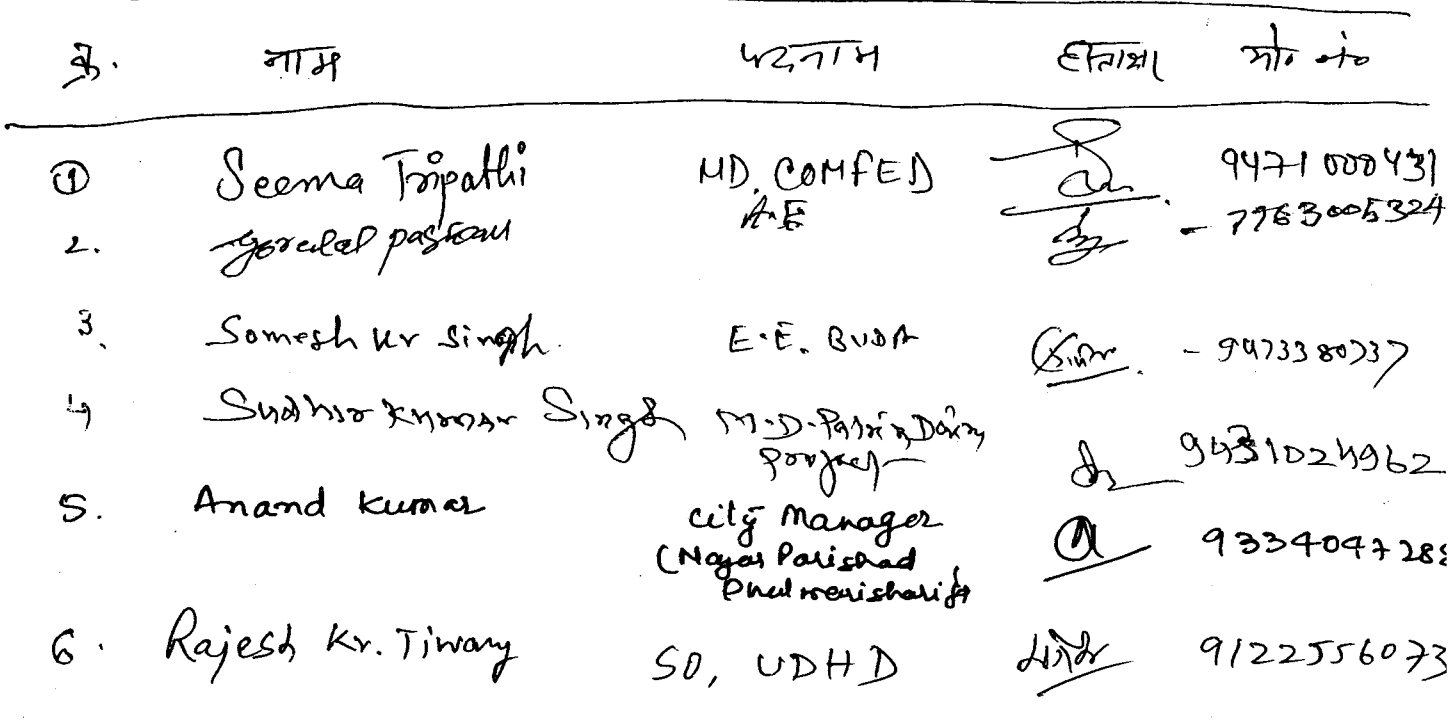 क्र. नाम पदनाम हस्ताक्षर मो० नं०
① Seema Tripathi MD, COMFED 9471000431
2. Gorelal A.E - 7763005324
3. Somesh kr singh. E.E. BUDA - 9473380737
4 Sudhir Kumar Singh M.D. Patna Dairy
Project 9431024962
5. Anand Kumar City Manager 933404728
(Nagar Parishad
Phulwarisharif)
6. Rajesh Kr. Tiwary SO, UDHD 9122556073